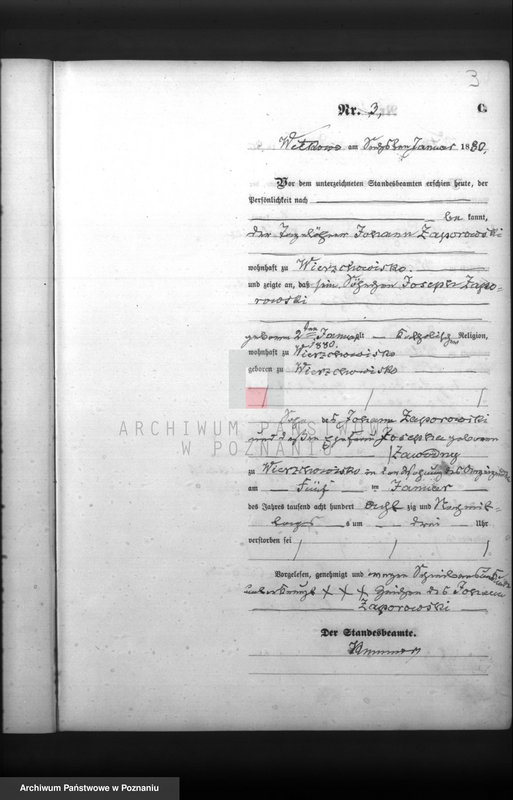 3
Nr. 3, C.
Witkowo am Sechsten Januar 1880,
Vor dem unterzeichneten Standesbeamten erschien heute, der
Persönlichkeit nach
be kannt,
der Tagelöhner Johann Zaporowski
wohnhaft zu Wierzchowisko.
und zeigte an, daß sein Söhnchen Joseph Zapo-
rowski
geboren 2ten Januar katholischer Religion,
1880.
wohnhaft zu Wierzchowisko
geboren zu Wierzchowisko
ARCHIWUM PAŃSTWOWE
W POZNANIU
Sohn des Johann Zaporowski
und dessen Ehefrau Josepha geborenen
Zawodny
zu Wierzchowisko in
am Fünf ten Januar
des Jahres tausend acht hundert Acht zig und Nachmit-
tags um drei Uhr
verstorben sei
Vorgelesen, genehmigt und wegen
unterkreuzt XXX Zeichen des Johann
Zaporowski
Der Standesbeamte.
Archiwum Państwowe w Poznaniu